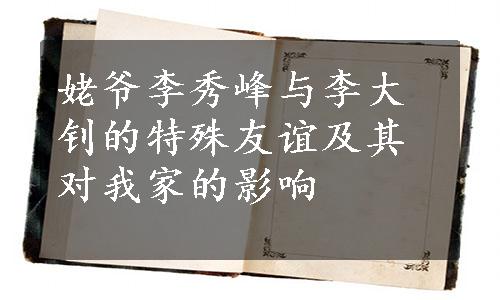 姥爷李秀峰与李大
钊的特殊友谊及其
对我家的影响